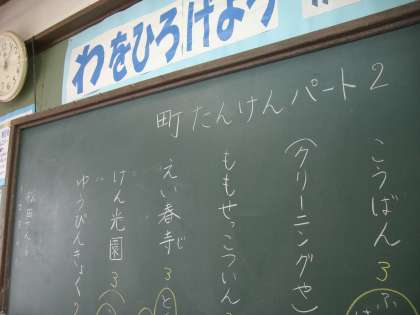 わをひろげよう
町たんけんパート2
こうばん 3
(クリーニングや)
ももせっこついん
えい春寺じ 3
けん光園 3
ゆうびんきょく